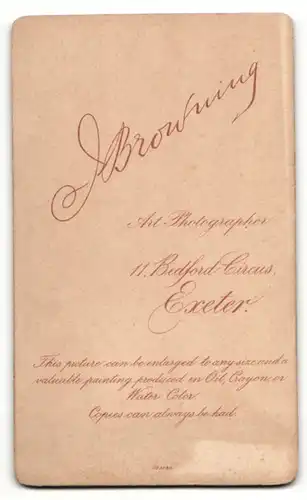 J Browning
Art Photographer
11, Bedford Circus,
Exeter.
This picture can be enlarged to any size and a
valuable painting produced in Oil, Crayon, or
Water Color.
Copies can always be had